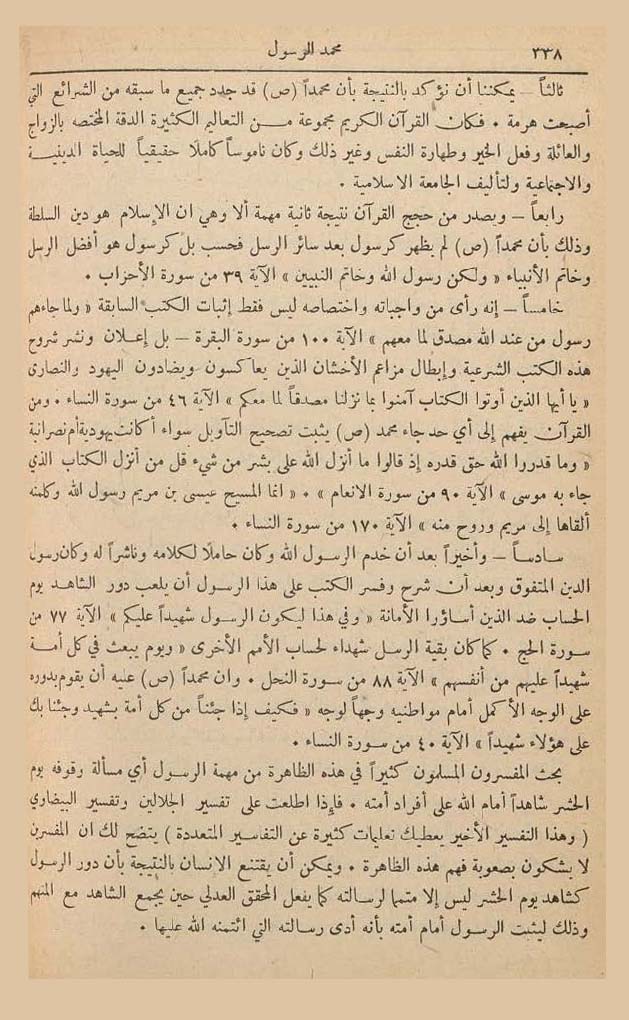 ٢٣٨ محمد الرسول
ثالثاً — يمكننا أن نؤكد بالنتيجة بأن محمداً (ص) قد جدد جميع ما سبقه من الشرائع التي
أصبحت هرمة . فكان القرآن الكريم مجموعة من التعاليم الكثيرة الدقة المختصه بالزواج
والعائلة وفعل الخير وطهارة النفس وغير ذلك وكان ناموساً كاملا حقيقياً للحياة الدينية
والاجتماعية ولتأليف الجامعة الاسلامية .
رابعاً — ويصدر من حجج القرآن نتيجة ثانية مهمة ألا وهي ان الإسلام هو دين السلطة
وذلك بأن محمداً (ص) لم يظهر كرسول بعد سائر الرسل فحسب بل كرسول هو أفضل الرسل
وخاتم الأنبياء « ولكن رسول الله وخاتم النبيين » الآية ٣٩ من سورة الأحزاب .
خامساً — إنه رأى من واجباته واختصاصه ليس فقط إثبات الكتب السابقة « ولما جاءهم
رسول من عند الله مصدق لما معهم » الآية ١٠٠ من سورة البقرة — بل إعلان ونشر شروح
هذه الكتب الشرعية وإبطال مزاعم الأخشان الذين يعاكسون ويضادون اليهود والنصارى
« يا أيها الذين أوتوا الكتاب آمنوا بما نزلنا مصدقاً لما معكم » الآية ٤٦ من سورة النساء . ومن
القرآن يفهم إلى أي حد جاء محمد (ص) يثبت تصحيح التأويل سواء أكانت يهودية أم نصرانية
« وما قدروا الله حق قدره إذ قالوا ما أنزل الله على بشر من شيء قل من أنزل الكتاب الذي
جاء به موسى » الآية ٩٠ من سورة الانعام » . « انما المسيح عيسى بن مريم رسول الله وكلمته
ألقاها إلى مريم وروح منه » الآية ١٧٠ من سورة النساء .
سادساً — وأخيراً بعد أن خدم الرسول الله وكان حاملا لكلامه وناشراً له وكان رسول
الدين المتفوق وبعد أن شرح وفسر الكتب على هذا الرسول أن يلعب دور الشاهد يوم
الحساب ضد الذين أساؤرا الأمانة « وفي هذا ليكون الرسول شهيداً عليكم » الآية ٧٧ من
سورة الحج . كما كان بقية الرسل شهداء لحساب الأمم الأخرى « ويوم يبعث في كل أمة
شهيداً عليهم من أنفسهم » الآية ٨٨ من سورة النحل . وان محمداً (ص) عليه أن يقوم بدوره
على الوجه الأكمل أمام مواطنيه وجهاً لوجه « فكيف إذا جئنا من كل أمة بشهيد وجئنا بك
على هؤلاء شهيداً » الآية ٤٠ من سورة النساء .
بحث المفسرون المسلمون كثيراً في هذه الظاهرة من مهمة الرسول أي مسألة وقوفه يوم
الحشر شاهداً أمام الله على أفراد أمته . فإذا اطلعت على تفسير الجلالين وتفسير البيضاوي
( وهذا التفسير الأخير يعطيك تعليمات كثيرة عن التفاسير المتعددة ) يتضح لك ان المفسرين
لا يشكون بصعوبة فهم هذه الظاهرة . ويمكن أن يقتنع الانسان بالنتيجة بأن دور الرسول
كشاهد يوم الحشر ليس إلا متمما لرسالته كما يفعل المحقق العدلي حين يجمع الشاهد مع المتهم
وذلك ليثبت الرسول أمام أمته بأنه أدى رسالته التي ائتمنه الله عليها .